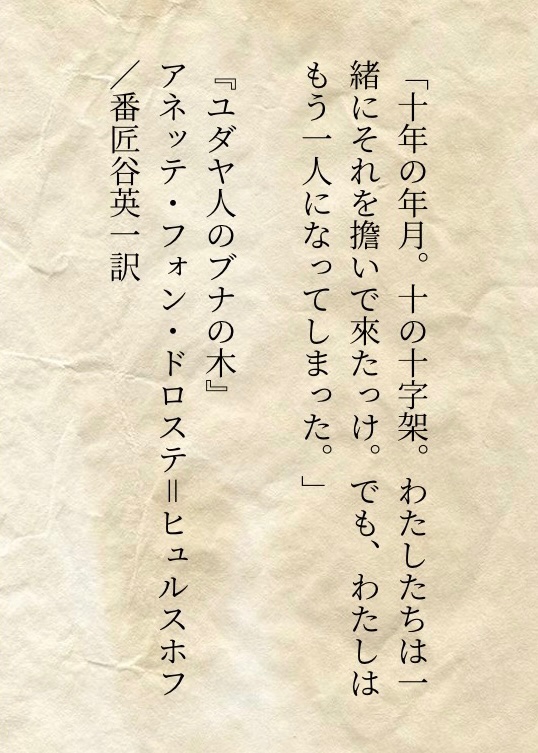 「十年の年月。十の十字架。わたしたちは一
緒にそれを擔いで來たっけ。でも、わたしは
もう一人になってしまった。」
『ユダヤ人のブナの木』
アネッテ・フォン・ドロステ＝ヒュルスホフ
／番匠谷英一訳